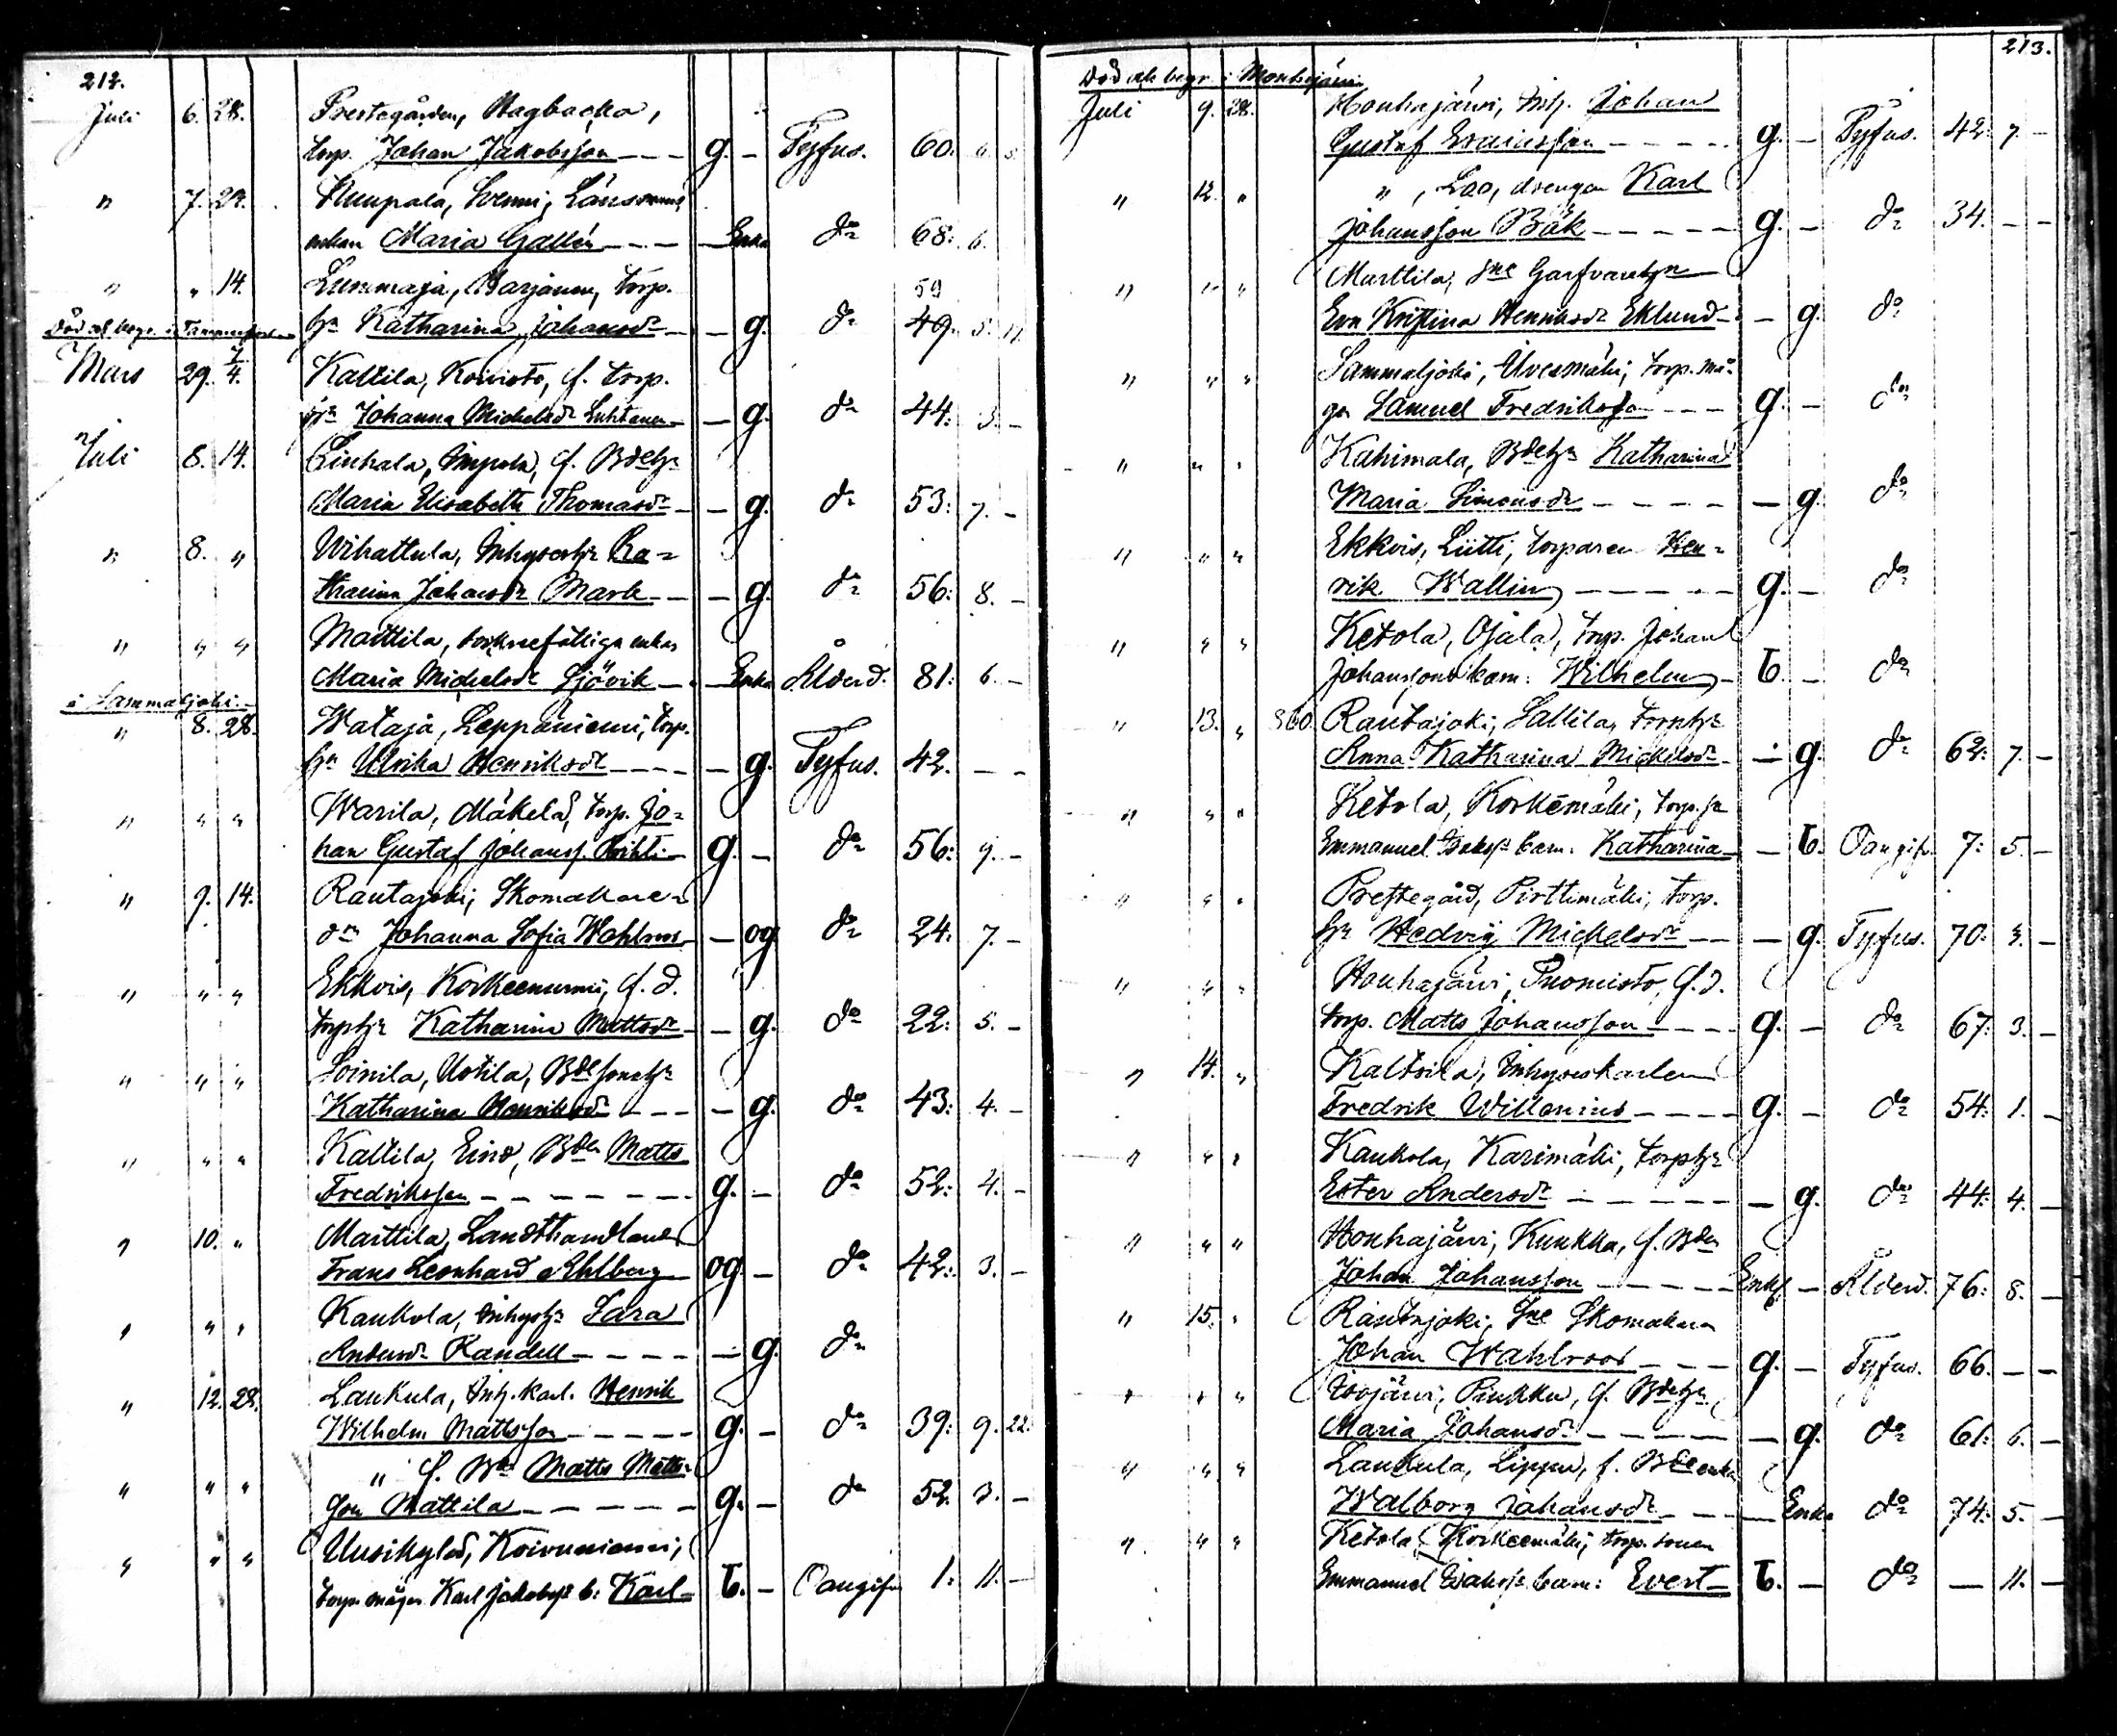 212.
Juli 6. 28. Prestegården, Hagbacka,
torp. Johan Jakobsson - - - g. - Tyfus. 60.
" 7. 28. Nuupala, Länsmans
enkan Maria Gallén - - - Enka do 68: 6.
" " 14. Lummaja, Harjanen, torp.
59
hu Katharina Johansdr - - g. do 49. 5. 17
Död och begr. i Tammerfors
Mars 29. 7/4. Kaltila, Koivisto, f. torp.
Johanna Michelsdr Luhtanen - - g. do 44: 3. -
Juli 8. 14. f. Bdehu
Maria Elisabeth Thomasdr - - g. do 53: 7. -
" 8. " Wihattula, Inhyseshu Ka-
tharina Johansdr Mark - - - g. do 56: 8. -
" " " Marttila, enkan
Maria Michelsdr Sjövik - - Enka Ålderd. 81: 6. -
i Sammaljoki
" 8. 28. Wataja, Leppäniemi, torp.
hu Ulrika Henriksdr - - - - g. Tyfus. 42. - -
" " " Warila, Mäkelä, torp. Jo-
han Gustaf Johanss. - g. - do 56: 9. -
" 9. 14. Rautajoki, Skomakare-
dr Johanna Sofia Wahlroos - - og do 24: 7. -
" " " Ekkois, Korkeenurmi, f. d.
torphu Katharina Mattsdr - - g. do 22: 5. -
" " " Soinila, Uotila, Bdesonshu
Katharina Henriksdr - - - - g. do 43: 4. -
" " " Kaltila, Eino, Bden Matts
Fredriksson - - - - - - - g. - do 52: 4. -
" 10. " Marttila, Landthandlaren
Frans Leonhard Ahlberg - og - do 42: 3. -
" " " Kaukola, Inhyshu Sara
Andersdr Randell - - - - - g. do
" 12. 28. Laukula, Inh. karl. Henrik
Wilhelm Mattsson - - - - - g. - do 39: 9. 22.
" " " " f. Bde Matts Matts-
son Mattila - - - - - - g. - do 52. 3. -
" " " Uusikylä, Koivuniemi,
torp. mågen Karl Jakobss b: Karl - b. - Oangifn 1: 11. -
213.
Död och begr. i Mouhijärvi
Juli 9. 28. Houhajärvi, Inh. Johan
Gustaf - - - - - g. - Tyfus. 42: 7. -
" 12. " " , drengen Karl
Johansson Bäk - - - - - g. - do 34. - -
" " " Marttila, fne Garfvarehn
Eva Kristina Henriksdr Eklund - - g. do
" " " Sammaljoki, torp. må-
gen Samuel Fredriksson - - - g. - do
" " " Kahimala, Bdehu Katharina
Maria Simonsdr - - - - - g. do
" " " Ekkois, Liitti, torparen Hen-
rik Wallin - - - - - g. - do
" " " Ketola, Ojala, torp. Johan
Johanssons barn: Wilhelm - b. - do
" 13. " 360 Rautajoki, Sallila, torphu
Anna Katharina Michelsdr - - g. do 62: 7. -
" " " Ketola, Korkemäki, torp. sn
Emmanuel barn: Katharina - - b. Oangifn 7: 5. -
" " " Prestegård, Pirttimäki, torp.
hu Hedvig Michelsdr - - - g. Tyfus. 70: 3. -
" " " Houhajärvi, Tuomisto, f. d.
torp. Matts Johansson - - - - g. - do 67: 3. -
" 14. " Kaltsila, Inhyseskarlen
Fredrik Willenius - - - - g. - do 54: 1. -
" " " Kaukola, Karimäki, torphu
Ester Andersdr - - - - - - g. do 44: 4. -
" " " Houhajärvi, Kunkka, f. Bden
Johan Johansson - - - - - Enkl. - Ålderd. 76: 8. -
" 15. " Rautajoki, fne Skomakaren
Johan Wahlroos - - - - g. - Tyfus. 66. - -
" " " f. Bdehu
Maria Johansdr - - - - - - g. do 61: 6. -
" " " Laukula, f. Bdeenka
Walborg Johansdr - - - - Enka do 74: 5. -
" " " Ketola, Korkeemäki, torp. sonen
Emmanuel barn: Evert - b. - do - 11. -